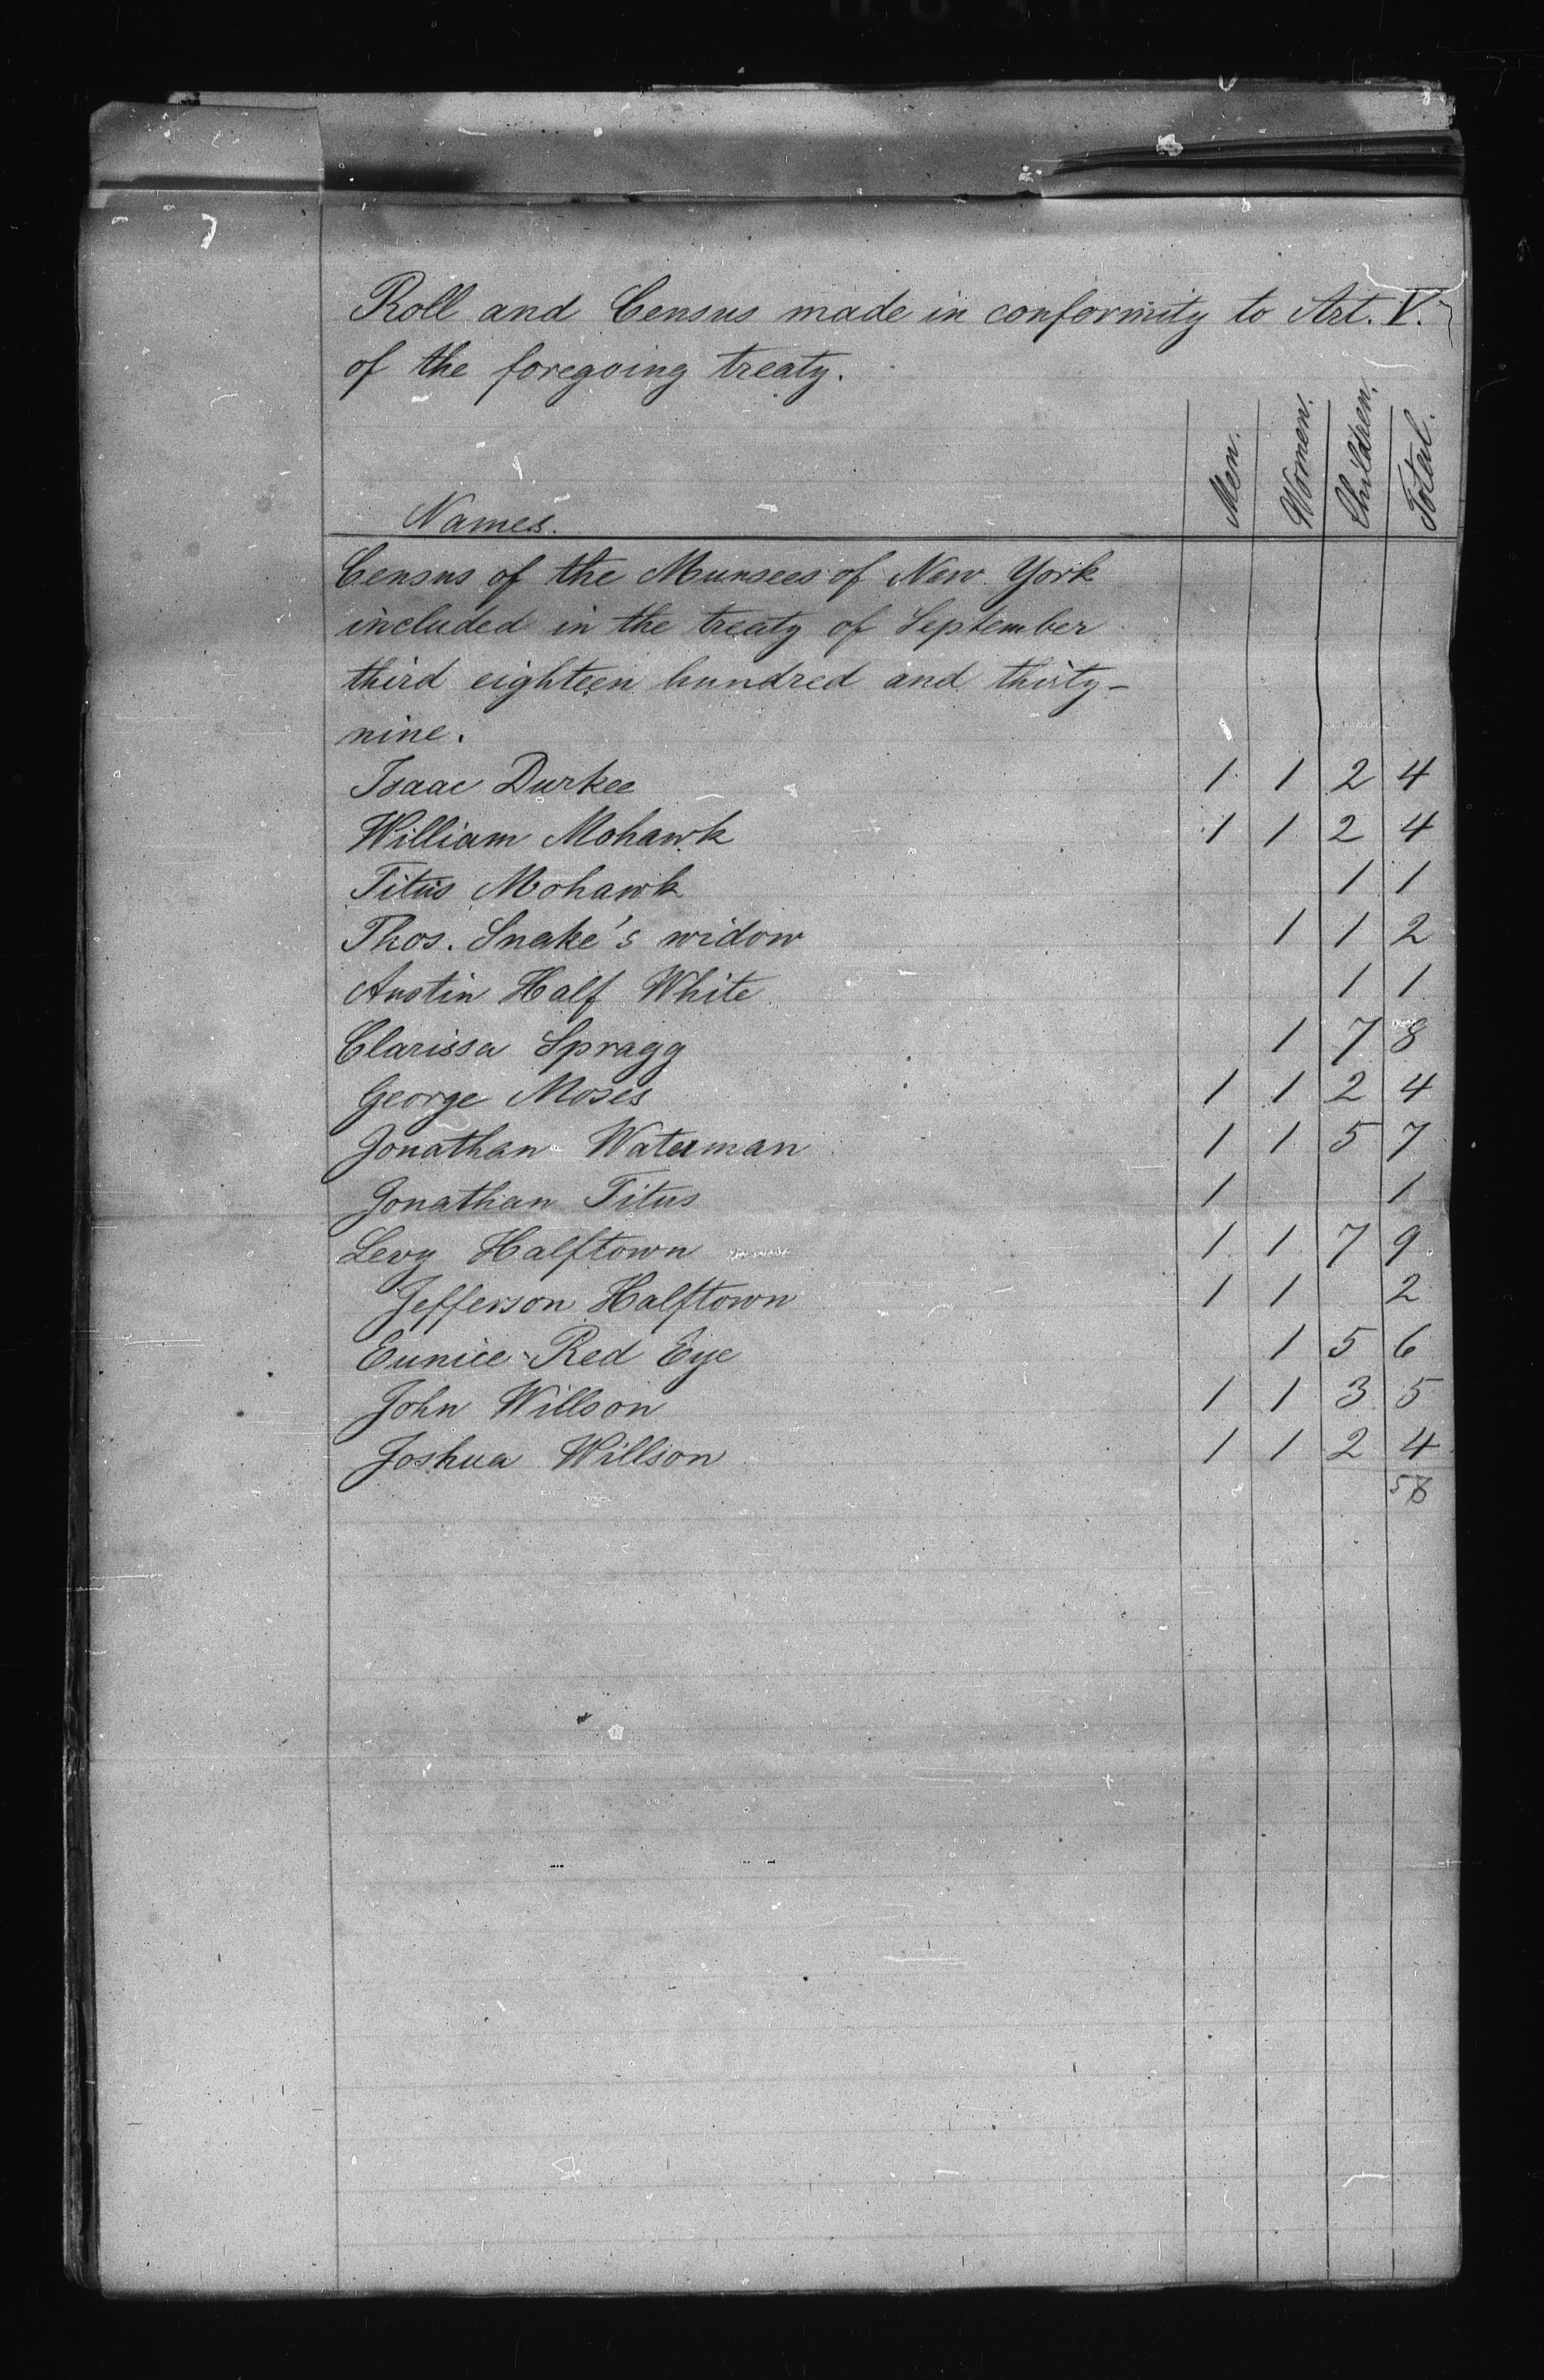 Roll and Census made in conformity to Art. V.
of the foregoing treaty.
Names. Men. Women. Children. Total.
Census of the Munsees of New York
included in the treaty of September
third eighteen hundred and thirty-
nine.
Isaac Durkee 1 1 2 4
William Mohawk 1 1 2 4
Titus Mohawk 1 1
Thos. Snake's widow 1 1 2
Austin Half White 1 1
Clarissa Spragg 1 7 8
George Moses 1 1 2 4
Jonathan Waterman 1 1 5 7
Jonathan Titus 1 1
Levy Halftown 1 1 7 9
Jefferson Halftown 1 1 2
Eunice Red Eye 1 5 6
John Willson 1 1 3 5
Joshua Willson 1 1 2 4
58